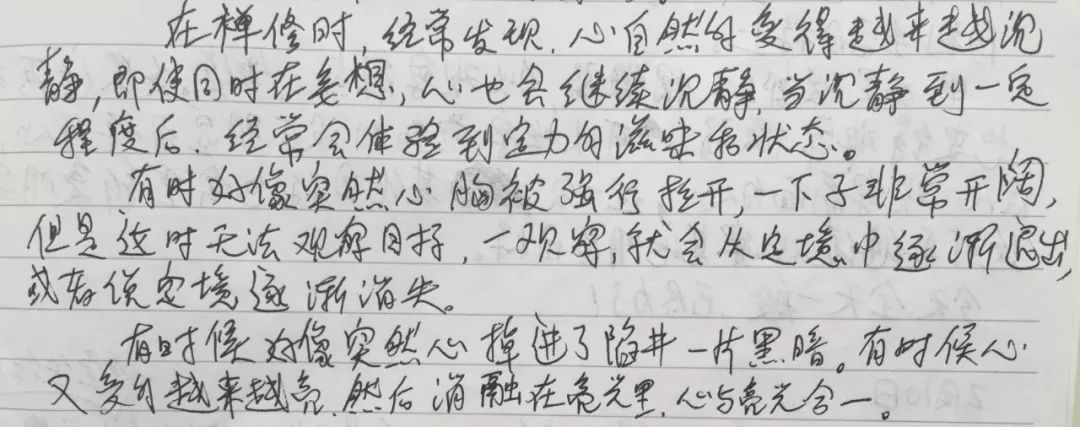 在禅修时,经常发现,心自然的变得越来越沉
静,即使同时在妄想,心也会继续沉静,当沉静到一定
程度后,经常会体验到定力的滋味和状态。
有时好像突然心胸被强行拉开,一下子非常开阔,
但是这时无法观察目标,一观察,就会从定境中逐渐退出,
或者说定境逐渐消失。
有时候好像突然心掉进了陷井一片黑暗。有时候心
又变的越来越亮,然后消融在亮光里,心与亮光合一。